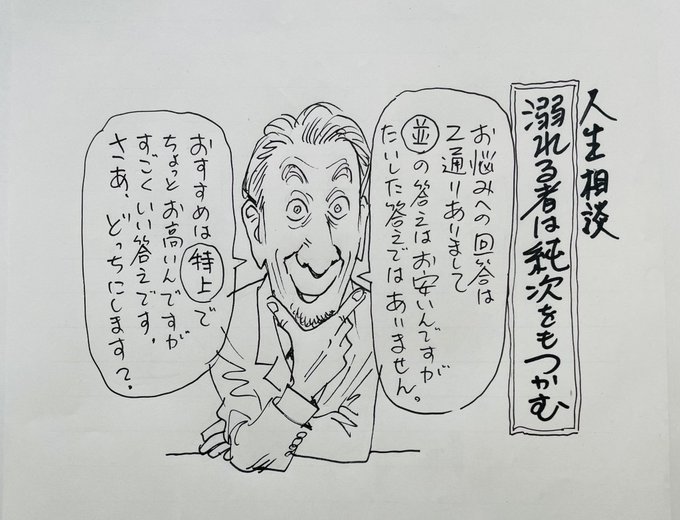 人生相談
溺れる者は純次をもつかむ
お悩みへの回答は
2通りありまして
並の答えはお安いんですが
たいした答えではありません。
おすすめは特上で
ちょっとお高いんですが
すごくいい答えです。
さあ、どっちにします?